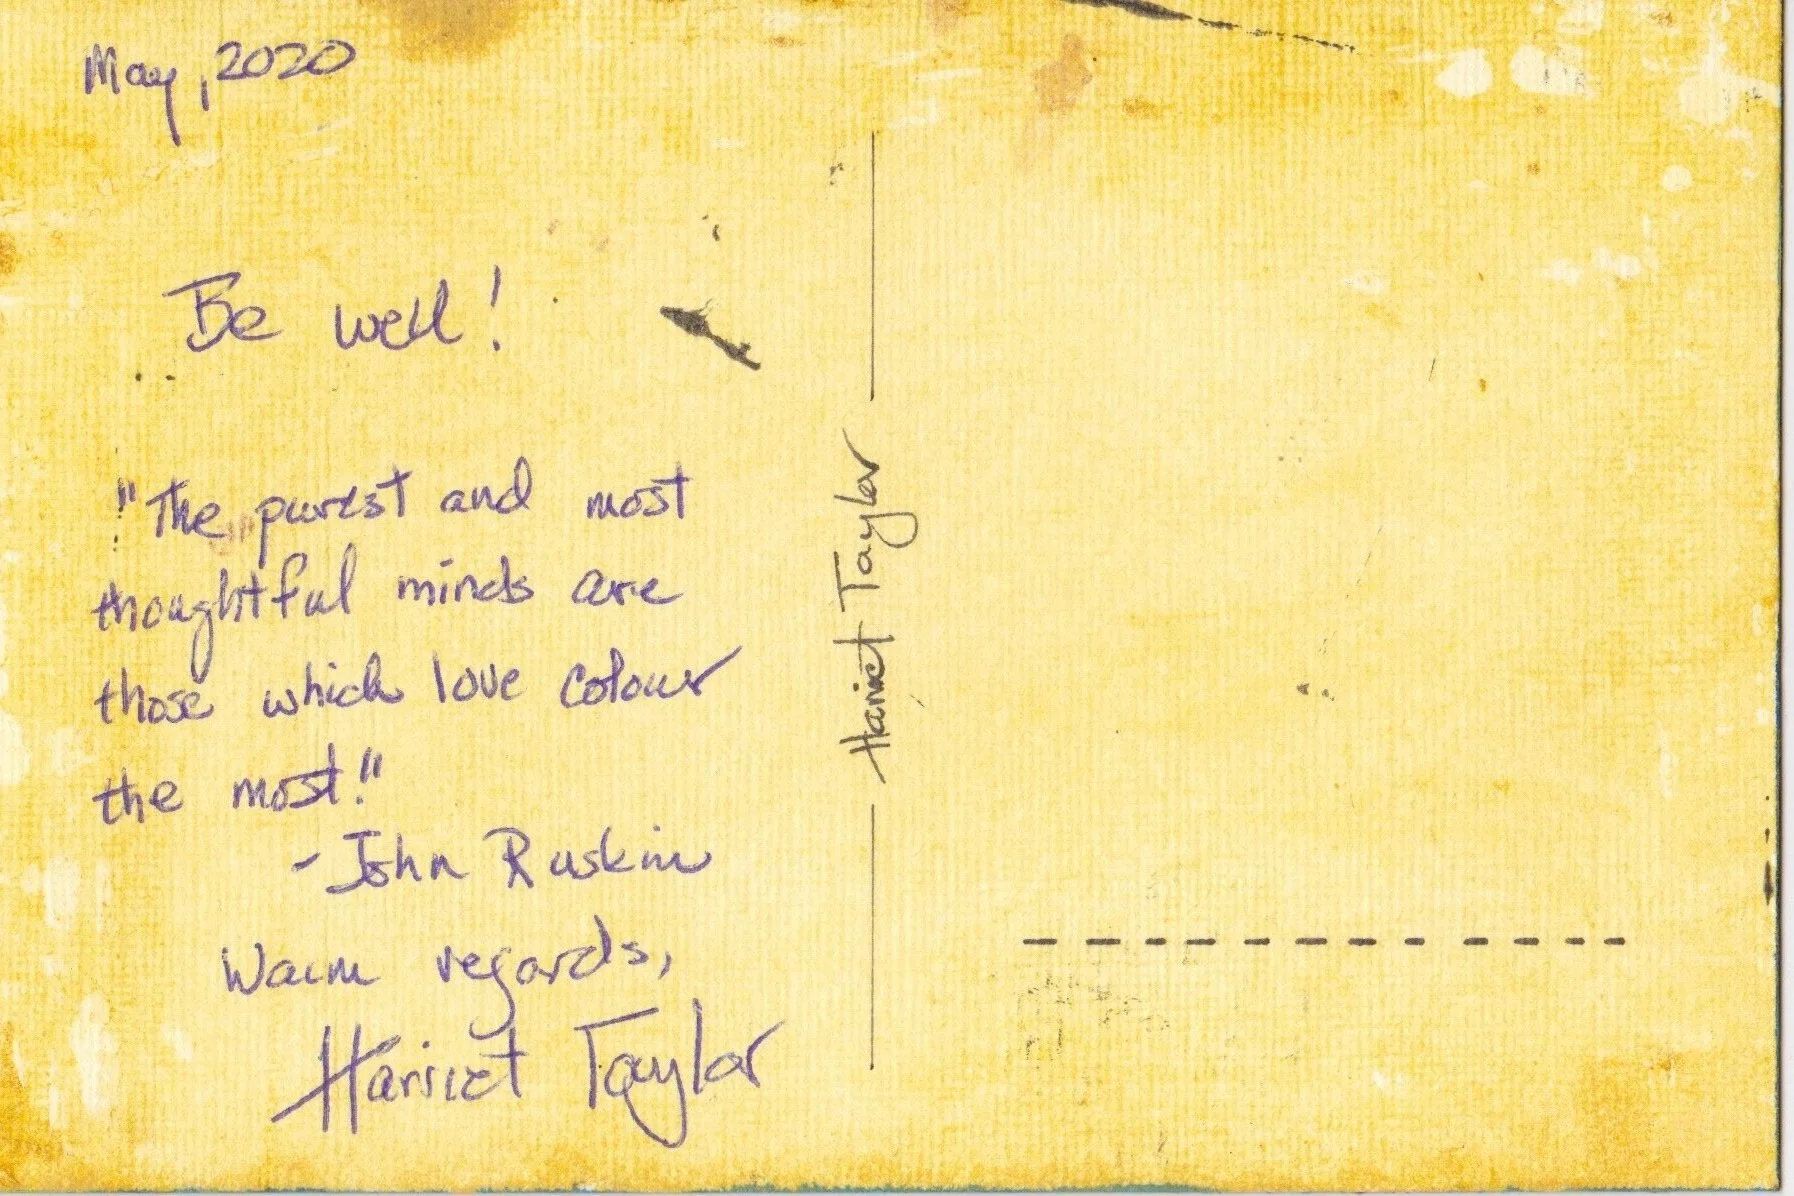 May, 2020
Be well!
"The purest and most
thoughtful minds are
those which love colour
the most!"
- John Ruskin
Warm regards,
Harriet Taylor
Harriet Taylor